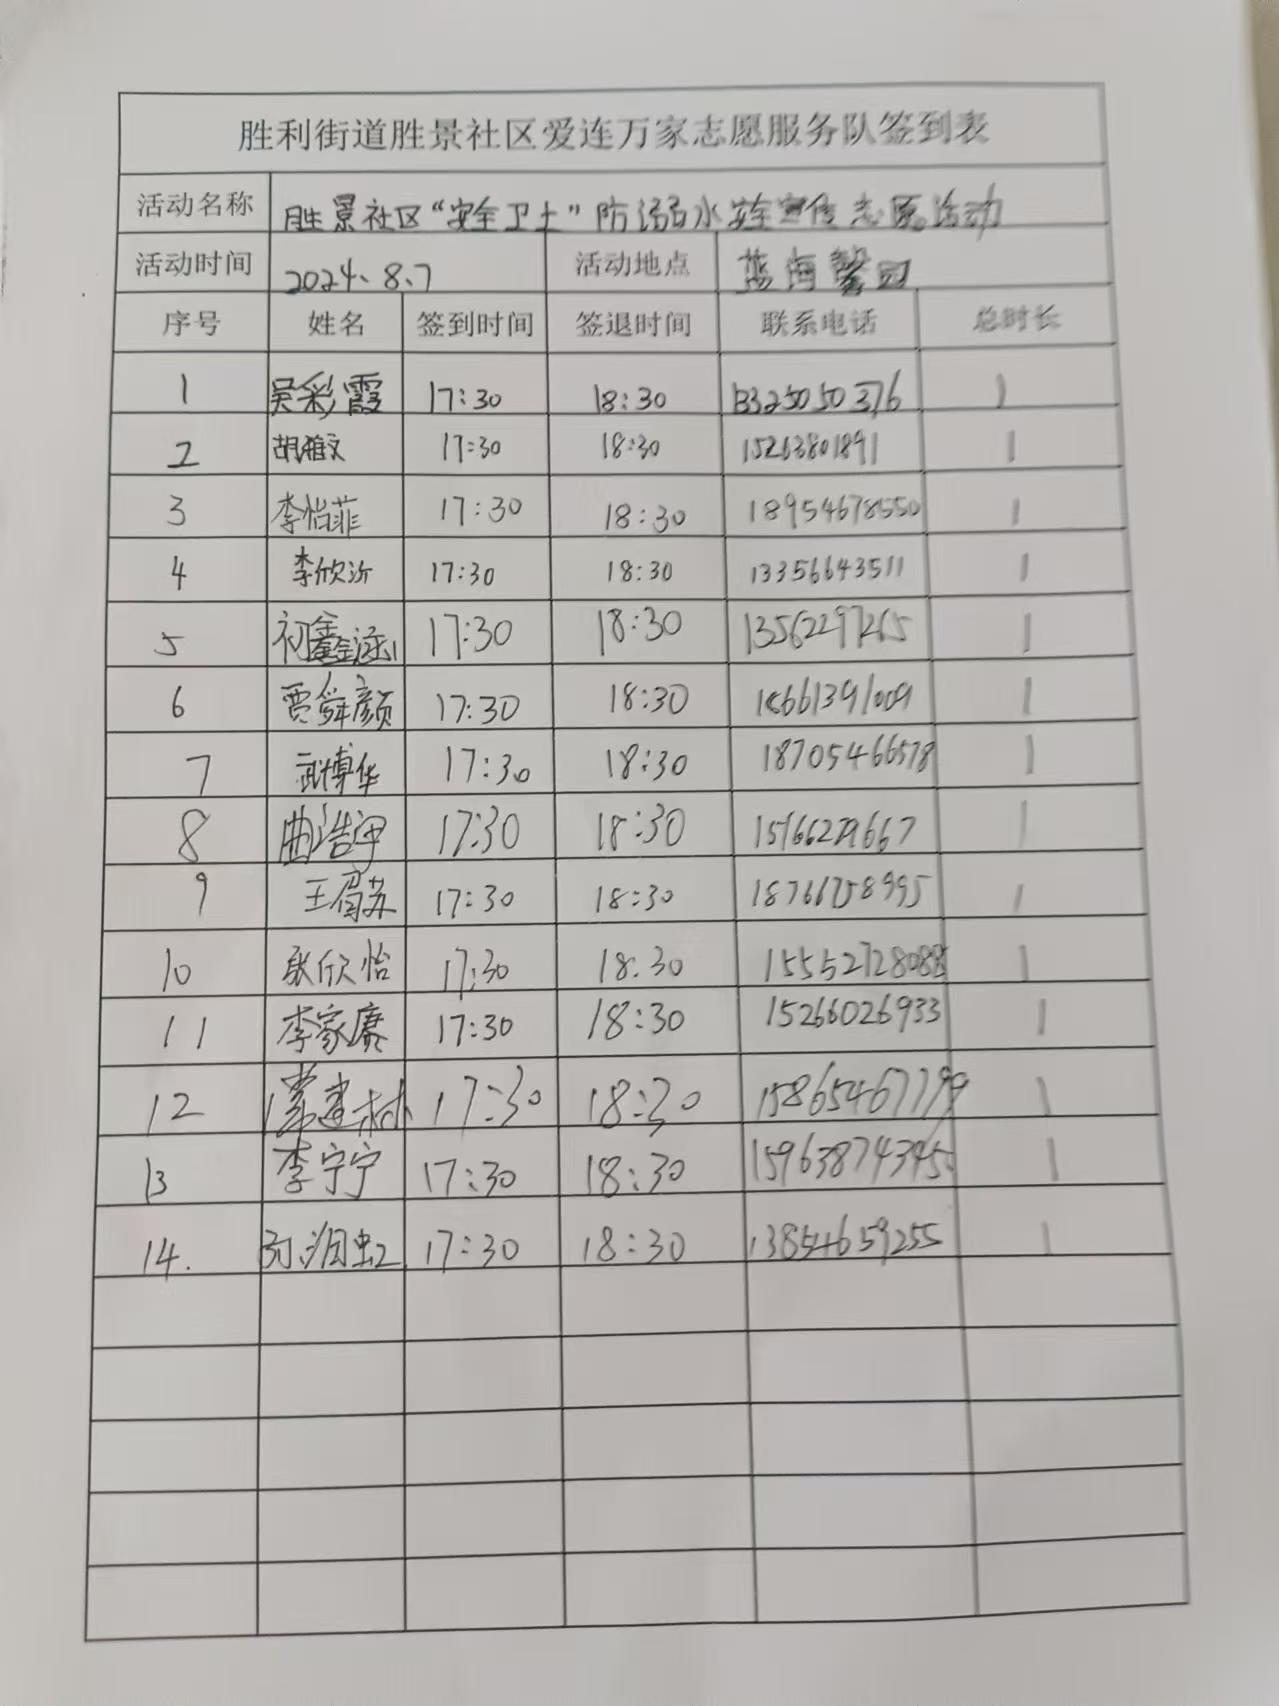 胜利街道胜景社区爱连万家志愿服务队签到表
活动名称 胜景社区“安全卫士”防溺水安全宣传志愿活动
活动时间 2024、8、7 活动地点 蓝海馨园
序号 姓名 签到时间 签退时间 联系电话 总时长
1 吴彩霞 17:30 18:30 1
2 胡雅文 17:30 18:30 15263801891 1
3 李怡菲 17:30 18:30 18954678550 1
4 李欣沂 17:30 18:30 13356643511 1
5 初鑫涵 17:30 18:30 13562297265 1
6 贾舜颜 17:30 18:30 15661391009 1
7 武博华 17:30 18:30 18705466578 1
8 曲浩宇 17:30 18:30 1
9 王眉苏 17:30 18:30 18766758995 1
10 耿欣怡 17:30 18:30 15552728088 1
11 李家赓 17:30 18:30 15266026933 1
12 17:30 18:30 15865467799 1
13 李宁宁 17:30 18:30 15963874345 1
14. 17:30 18:30 13854659255 1